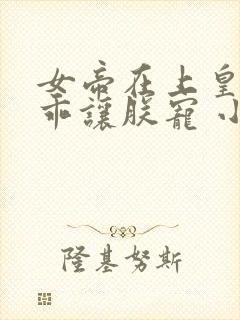 女帝在上皇
乖讓朕寵 小
隆基努斯